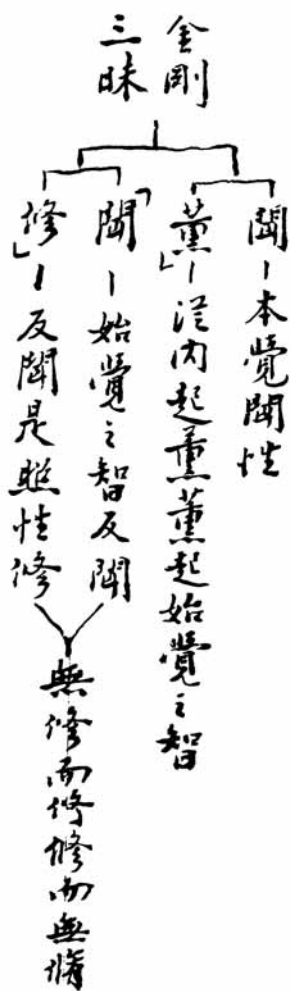 金剛
三昧
聞－本覺聞性
薰」－從內起薰薰起始覺之智
「聞－始覺之智反聞
修」－反聞是照性修
無修而修修而無修